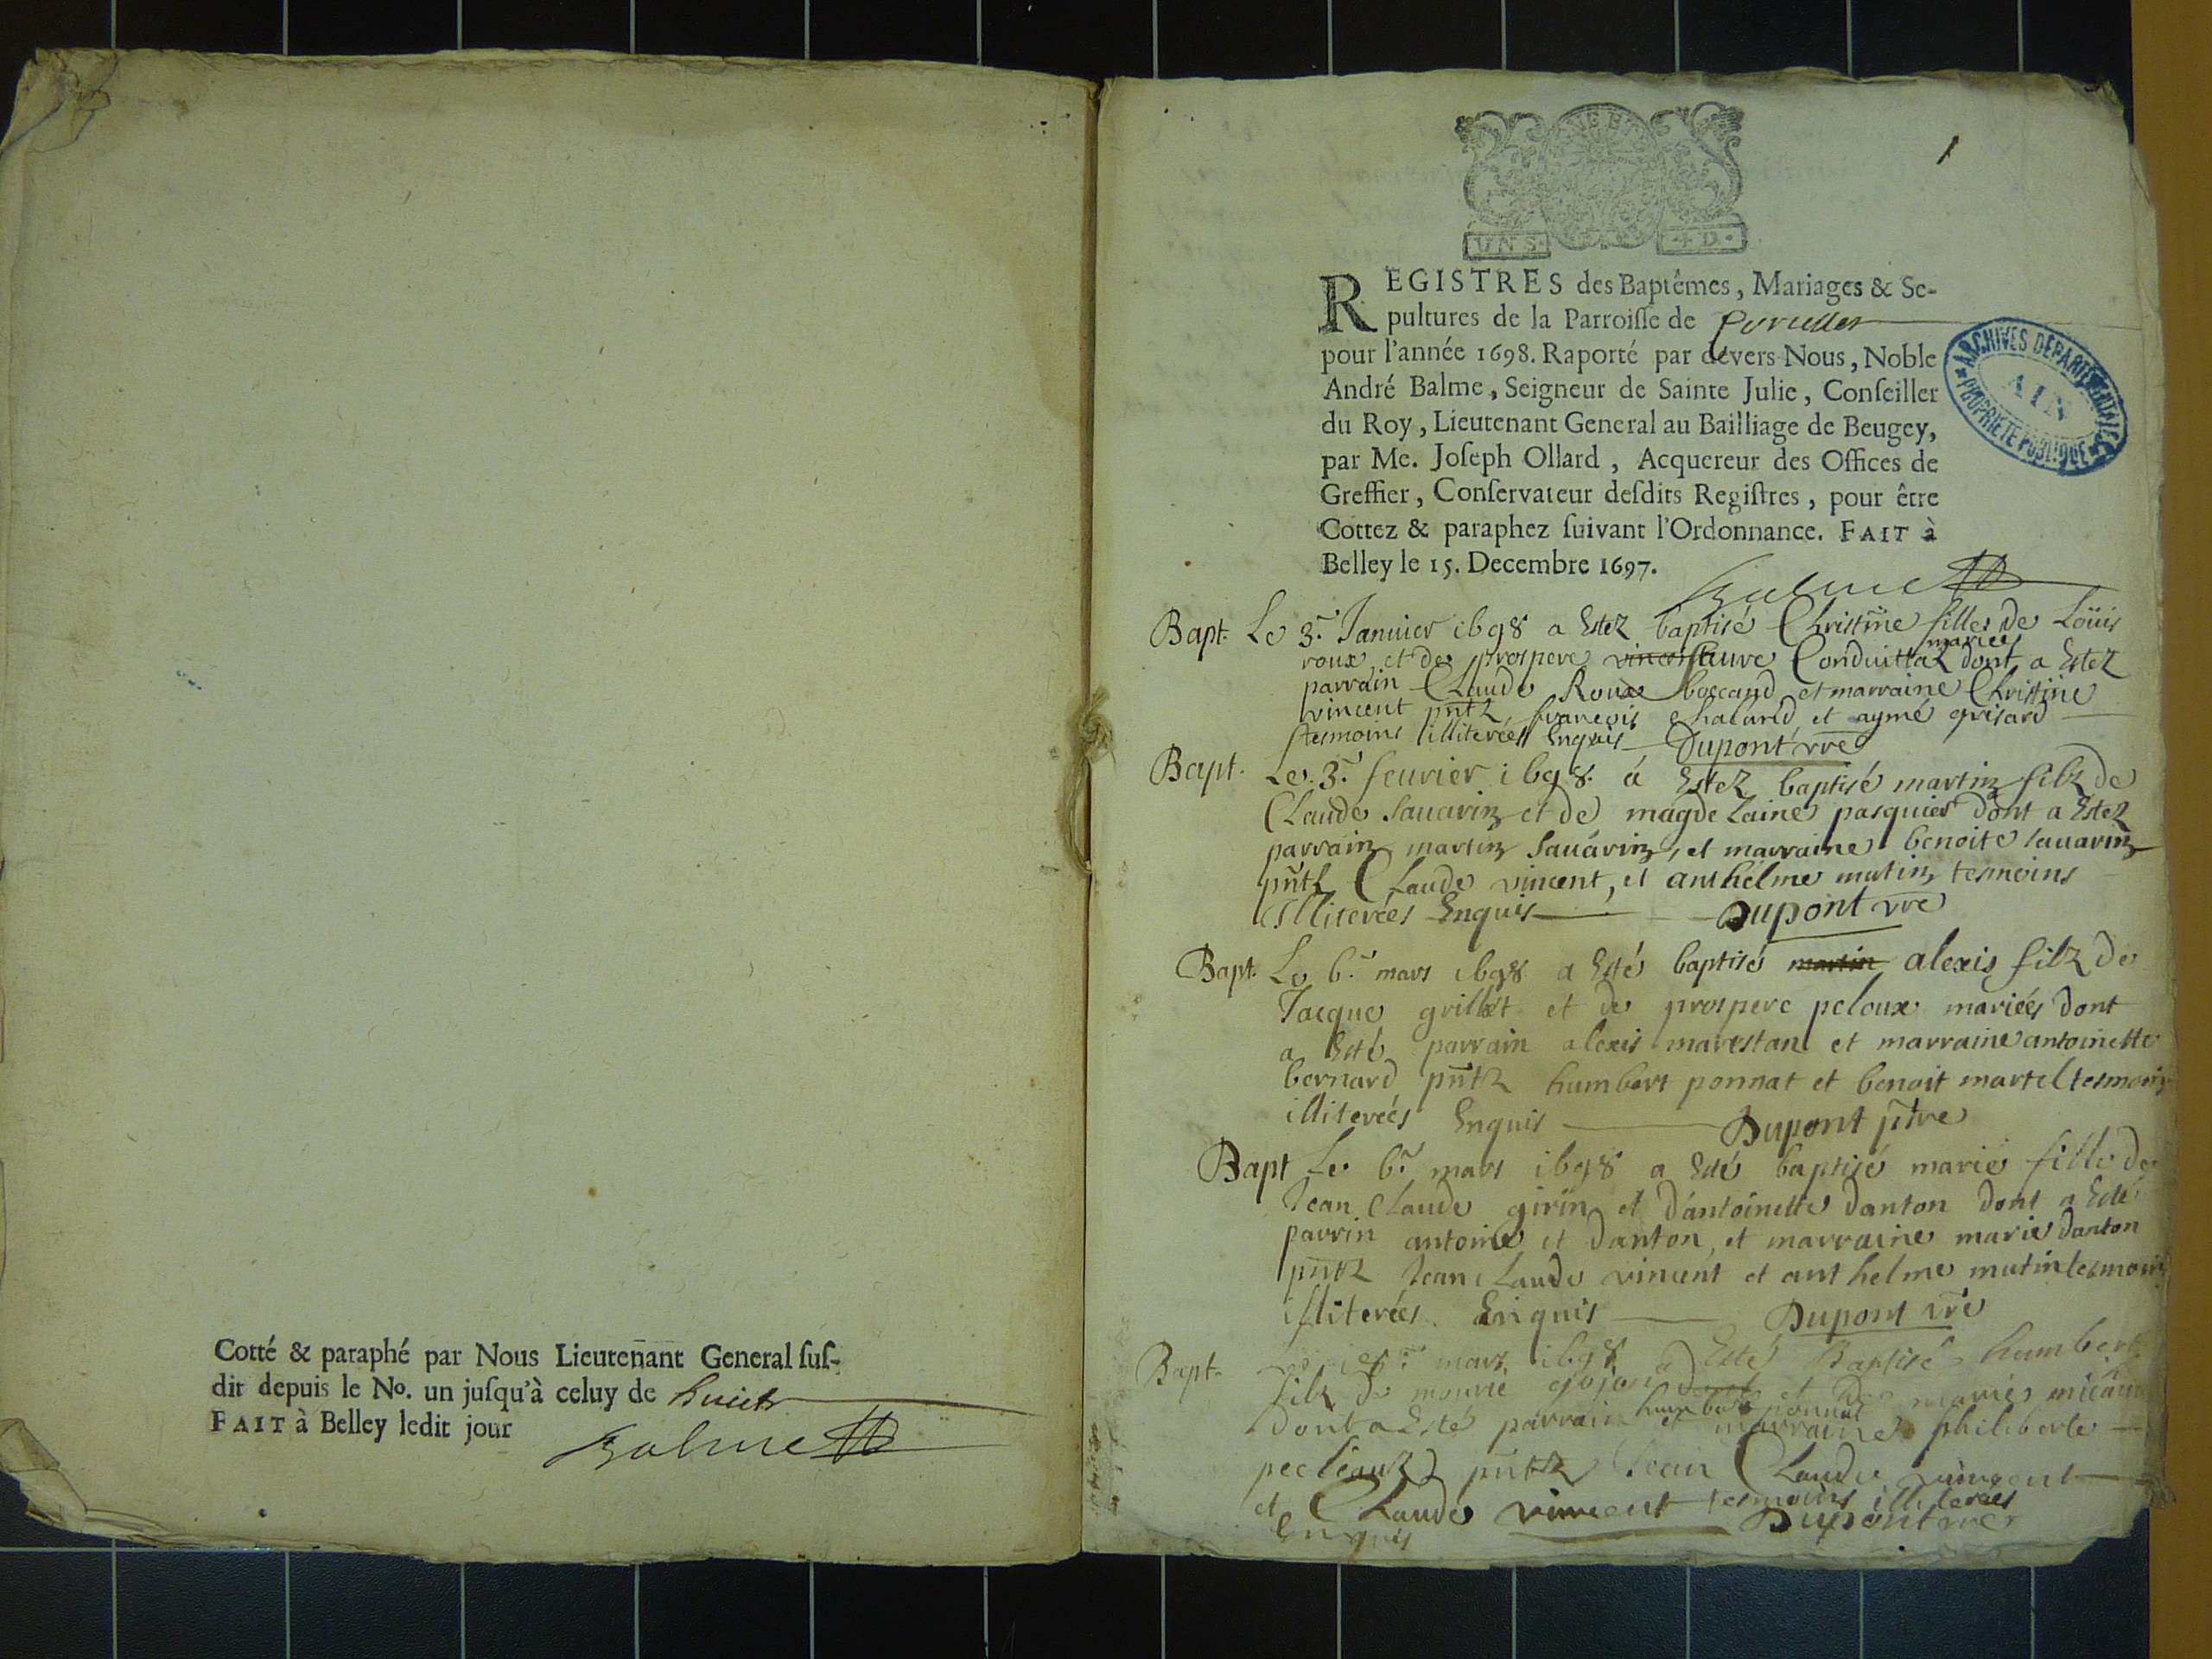 Cotté & paraphé par Nous Lieuteñant General suſ-
dit depuis le No. un juſqu'à celuy de huict
FAIT à Belley ledit jour
Balme
1
UN S. 4 D.
REGISTRES des Baptêmes, Mariages & Se-
pultures de la Parroiſſe de
pour l'année 1698. Raporté par devers Nous, Noble
André Balme, Seigneur de Sainte Julie, Conſeiller
du Roy, Lieutenant General au Bailliage de Beugey,
par Me. Joſeph Ollard, Acquereur des Offices de
Greffier, Conſervateur deſdits Regiſtres, pour être
Cottez & paraphez ſuivant l'Ordonnance. FAIT à
Belley le 15. Decembre 1697.
ARCHIVES DEPARTEMENTALES
AIN
PROPRIETE PUBLIQUE
Balme
Bapt. Le 3.e Januier 1698 a Estez baptisé Christine fille de Loüis
roux et de prospere Conduittaz mariees dont a Estez
parrain Claude Roux boccand et marraine Christine
vincent pñtz francois chaland et aymé grisard
tesmoins illiterées Enquis Dupont vre
Bapt. Le 3.e feurier 1698. á Estez baptisé martin filz de
Claude Sauarin et de magdelaine pasquier dont a Estez
parrain martin Sauarin, et marraine benoite sauarin
pñtz Claude vincent, et anthelme mutin tesmoins
illiterées Enquis Dupont vre
Bapt. Le 6.e mars 1698 a Esté baptisé martin alexis filz de
Jacque grillet et de prospere peloux mariées dont
a Esté parrain alexis marestan et marraine antoinette
bernard pñtz humbert ponnat et benoit martel tesmoin
illiterées Enquis Dupont ptre
Bapt Le 6.e mars 1698 a Esté baptisé marie fille de
Jean Claude girin et d'antoinette Danton dont a Esté
parrin antoine et Danton, et marraine marie Danton
pñtz Jean Claude vincent et anthelme mutin tesmoin
illiterées Enquis Dupont vre
Bapt. mars 1698 a Esté Baptisé humbert
filz de et de mariés
dont a Esté parrain humbert ponnat et marraine philiberte
pñtz Jean Claude vincent
et Claude vincent tesmoins illiterées
Enquis Dupont vre